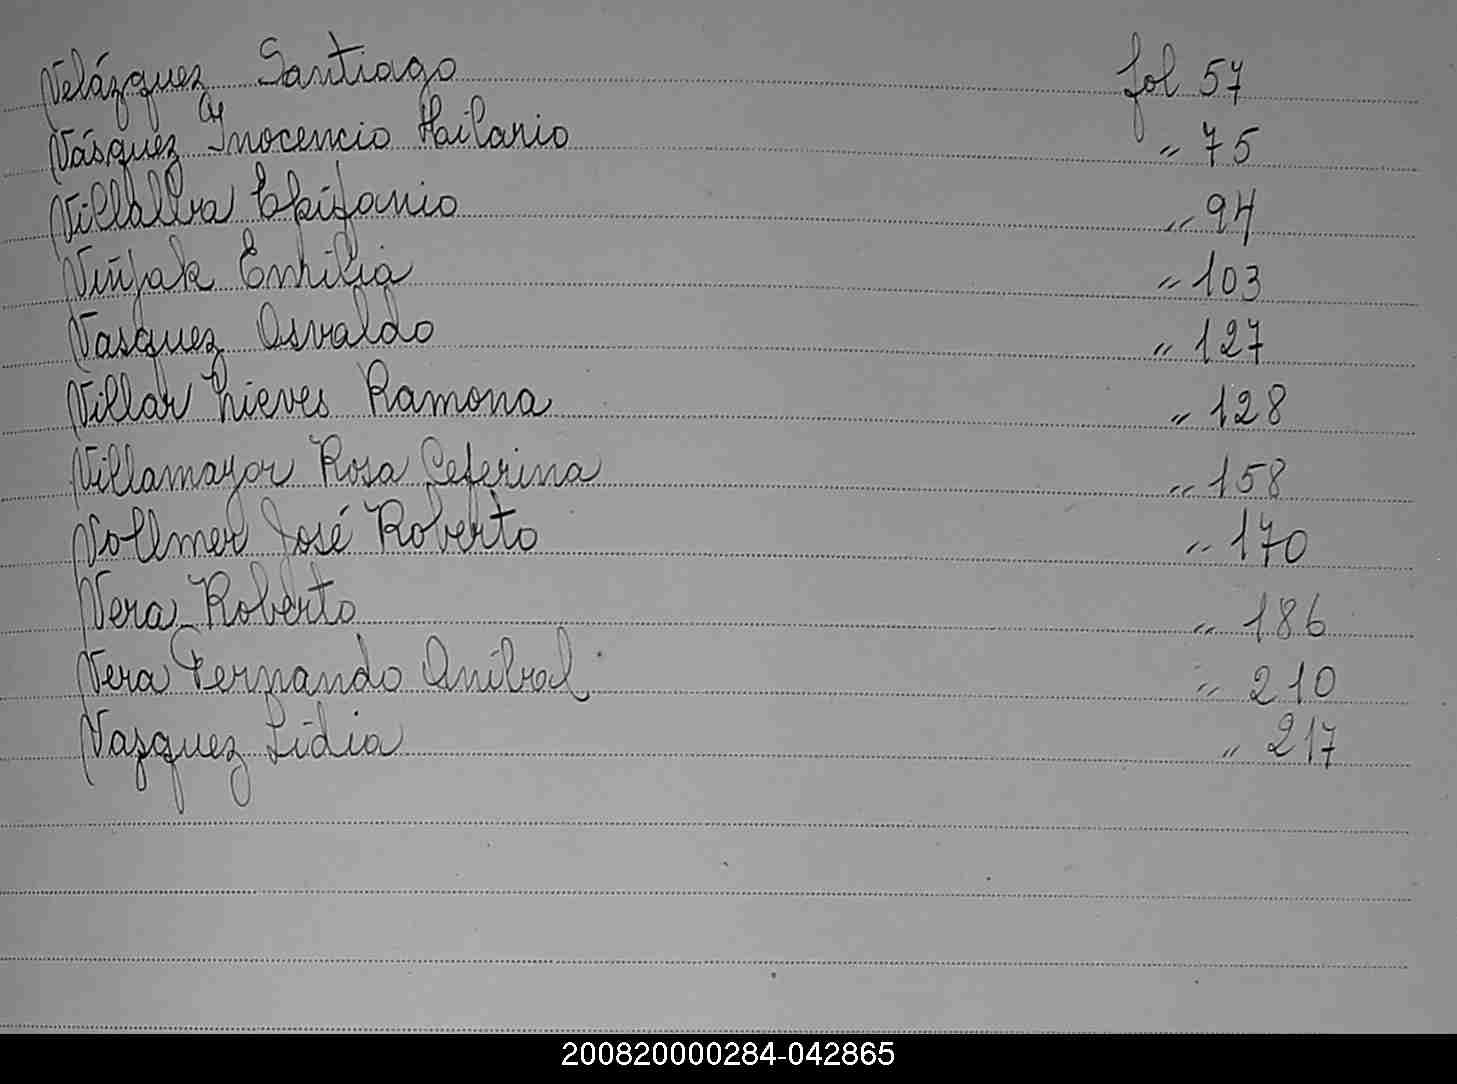 Velázquez Santiago fol 57
Vásquez Inocencio Hilario " 75
Villalva Epifanio " 94
Viñjak Emilia " 103
Vasquez Osvaldo " 127
Villar Nieves Ramona " 128
Villamayor Rosa Ceferina " 158
Vollmer José Roberto " 170
Vera Roberto " 186
Vera Fernando Aníbal " 210
Vazquez Lidia " 217
200820000284-042865